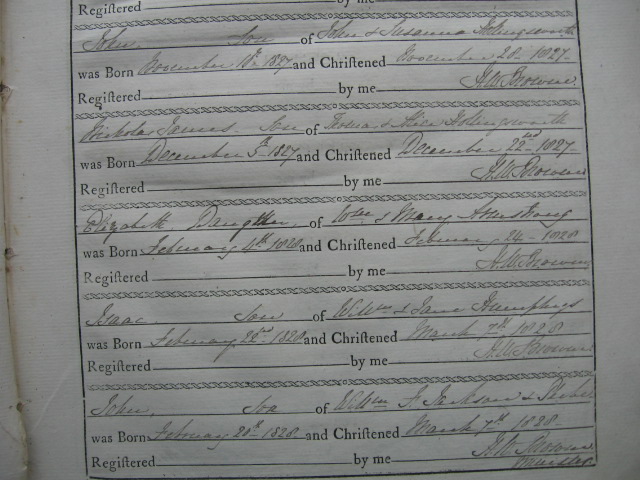 Registered by me
John Son of John & Susanna Holingsworth
was Born November 1827 and Christened November 28 1827
Registered by me H.W. Browne
Nicholas James Son of Thomas & Alice Holingsworth
was Born December 5th 1827 and Christened December 22nd 1827
Registered by me H.W. Browne
Elizabeth Daughter of Wm & Mary Armstrong
was Born February 4th 1828 and Christened February 24 1828
Registered by me H.W. Browne
Isaac Son of Willm & Jane Humphrys
was Born February 1828 and Christened March 7th 1828
Registered by me H.W. Browne
John Son of Willm F. Jackson &
was Born February 20th 1828 and Christened March 7th 1828
Registered by me H.W. Browne
Minister